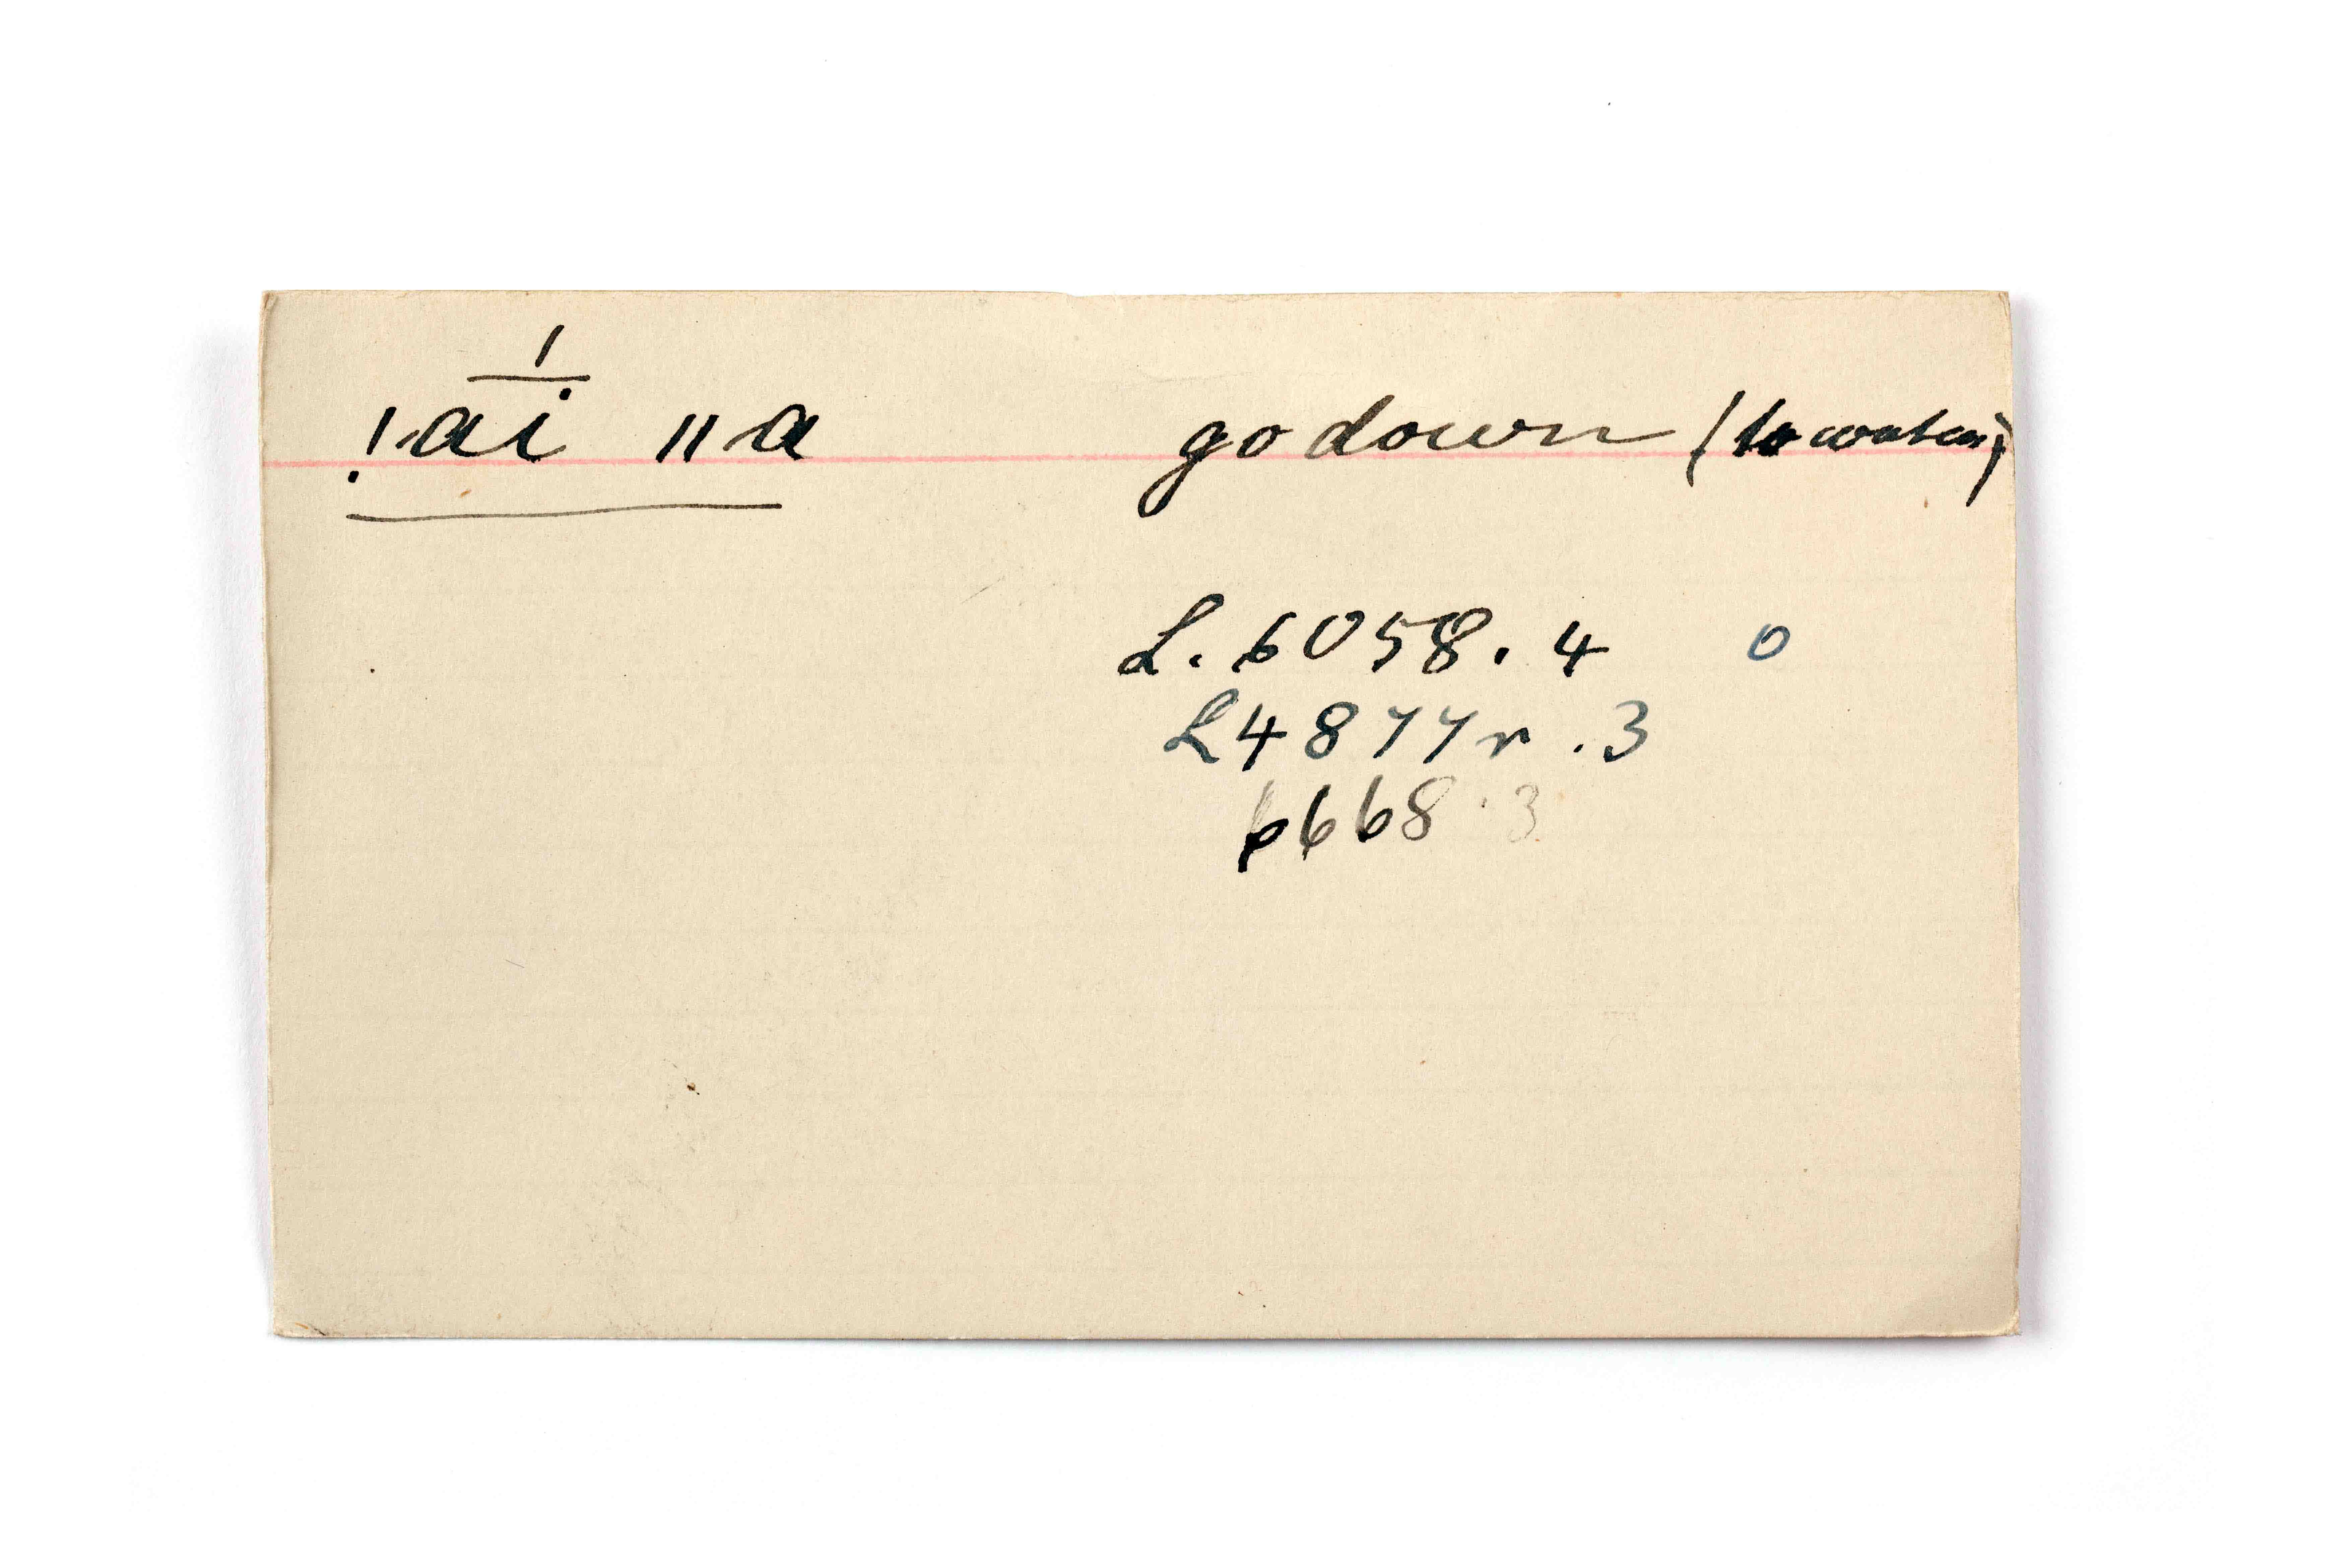 !ai ǁa go down (to water)
L. 6058. 4 0
L4877r . 3
6668 . 3